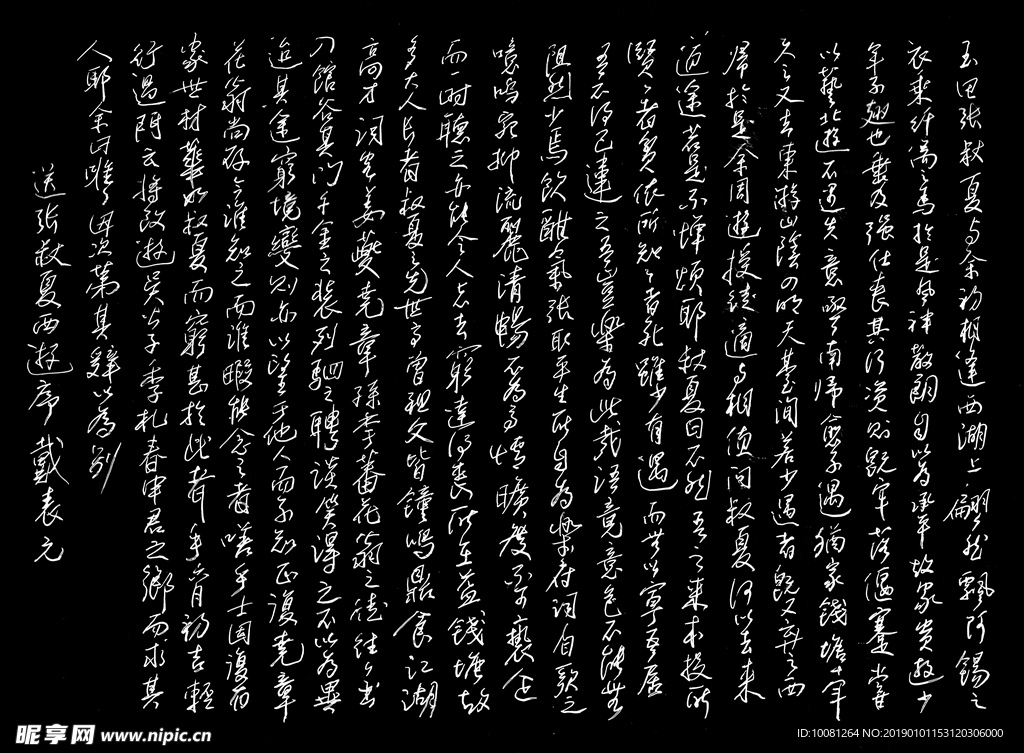 玉田张叔夏与余初相逢西湖上翩翩然飘阿锡之
衣乘纤离之马於是风神散朗自以为承平故家贵游少
年不翅也垂及强仕丧其行资则既牢落偃蹇尝
以艺北游不遇失意亟亟南归愈不遇犹家钱塘十年
久之又去东游山阴四明天台间若少遇者既又弃之西
归於是余周游授徒适与相值问叔夏何以去来
道途若是不惮烦耶叔夏曰不然吾之来本投所
贤贤者贫依所知知者死虽少有遇而无以宁吾居
吾不得已违之吾岂乐为此哉语竟意色不能无
阻然少焉饮酣气张取平生所自为乐府词自歌之
噫呜宛抑流丽清畅不为高情旷度不可亵企
而一时听之亦能令人忘去穷达得丧所在盖钱塘故
多大人长者叔夏之先世高曾祖父皆钟鸣鼎食江湖
高才词客姜夔尧章孙季蕃花翁之徒往往出
入馆谷其门千金之装列驷之聘谈笑得之不以为异
迨其途穷境变则亦以望于他人而不知正复尧章
花翁尚存今谁知之而谁暇能念之者嗟乎士固复有
家世材华如叔夏而穷甚於此者乎六月初吉轻
行过门云将改游吴公子季札春申君之乡而求其
人耶余曰唯唯因次第其辞以为别
送张叔夏西游序 戴表元
昵享网 www.nipic.cn
ID:10081264 NO:20190101153120306000